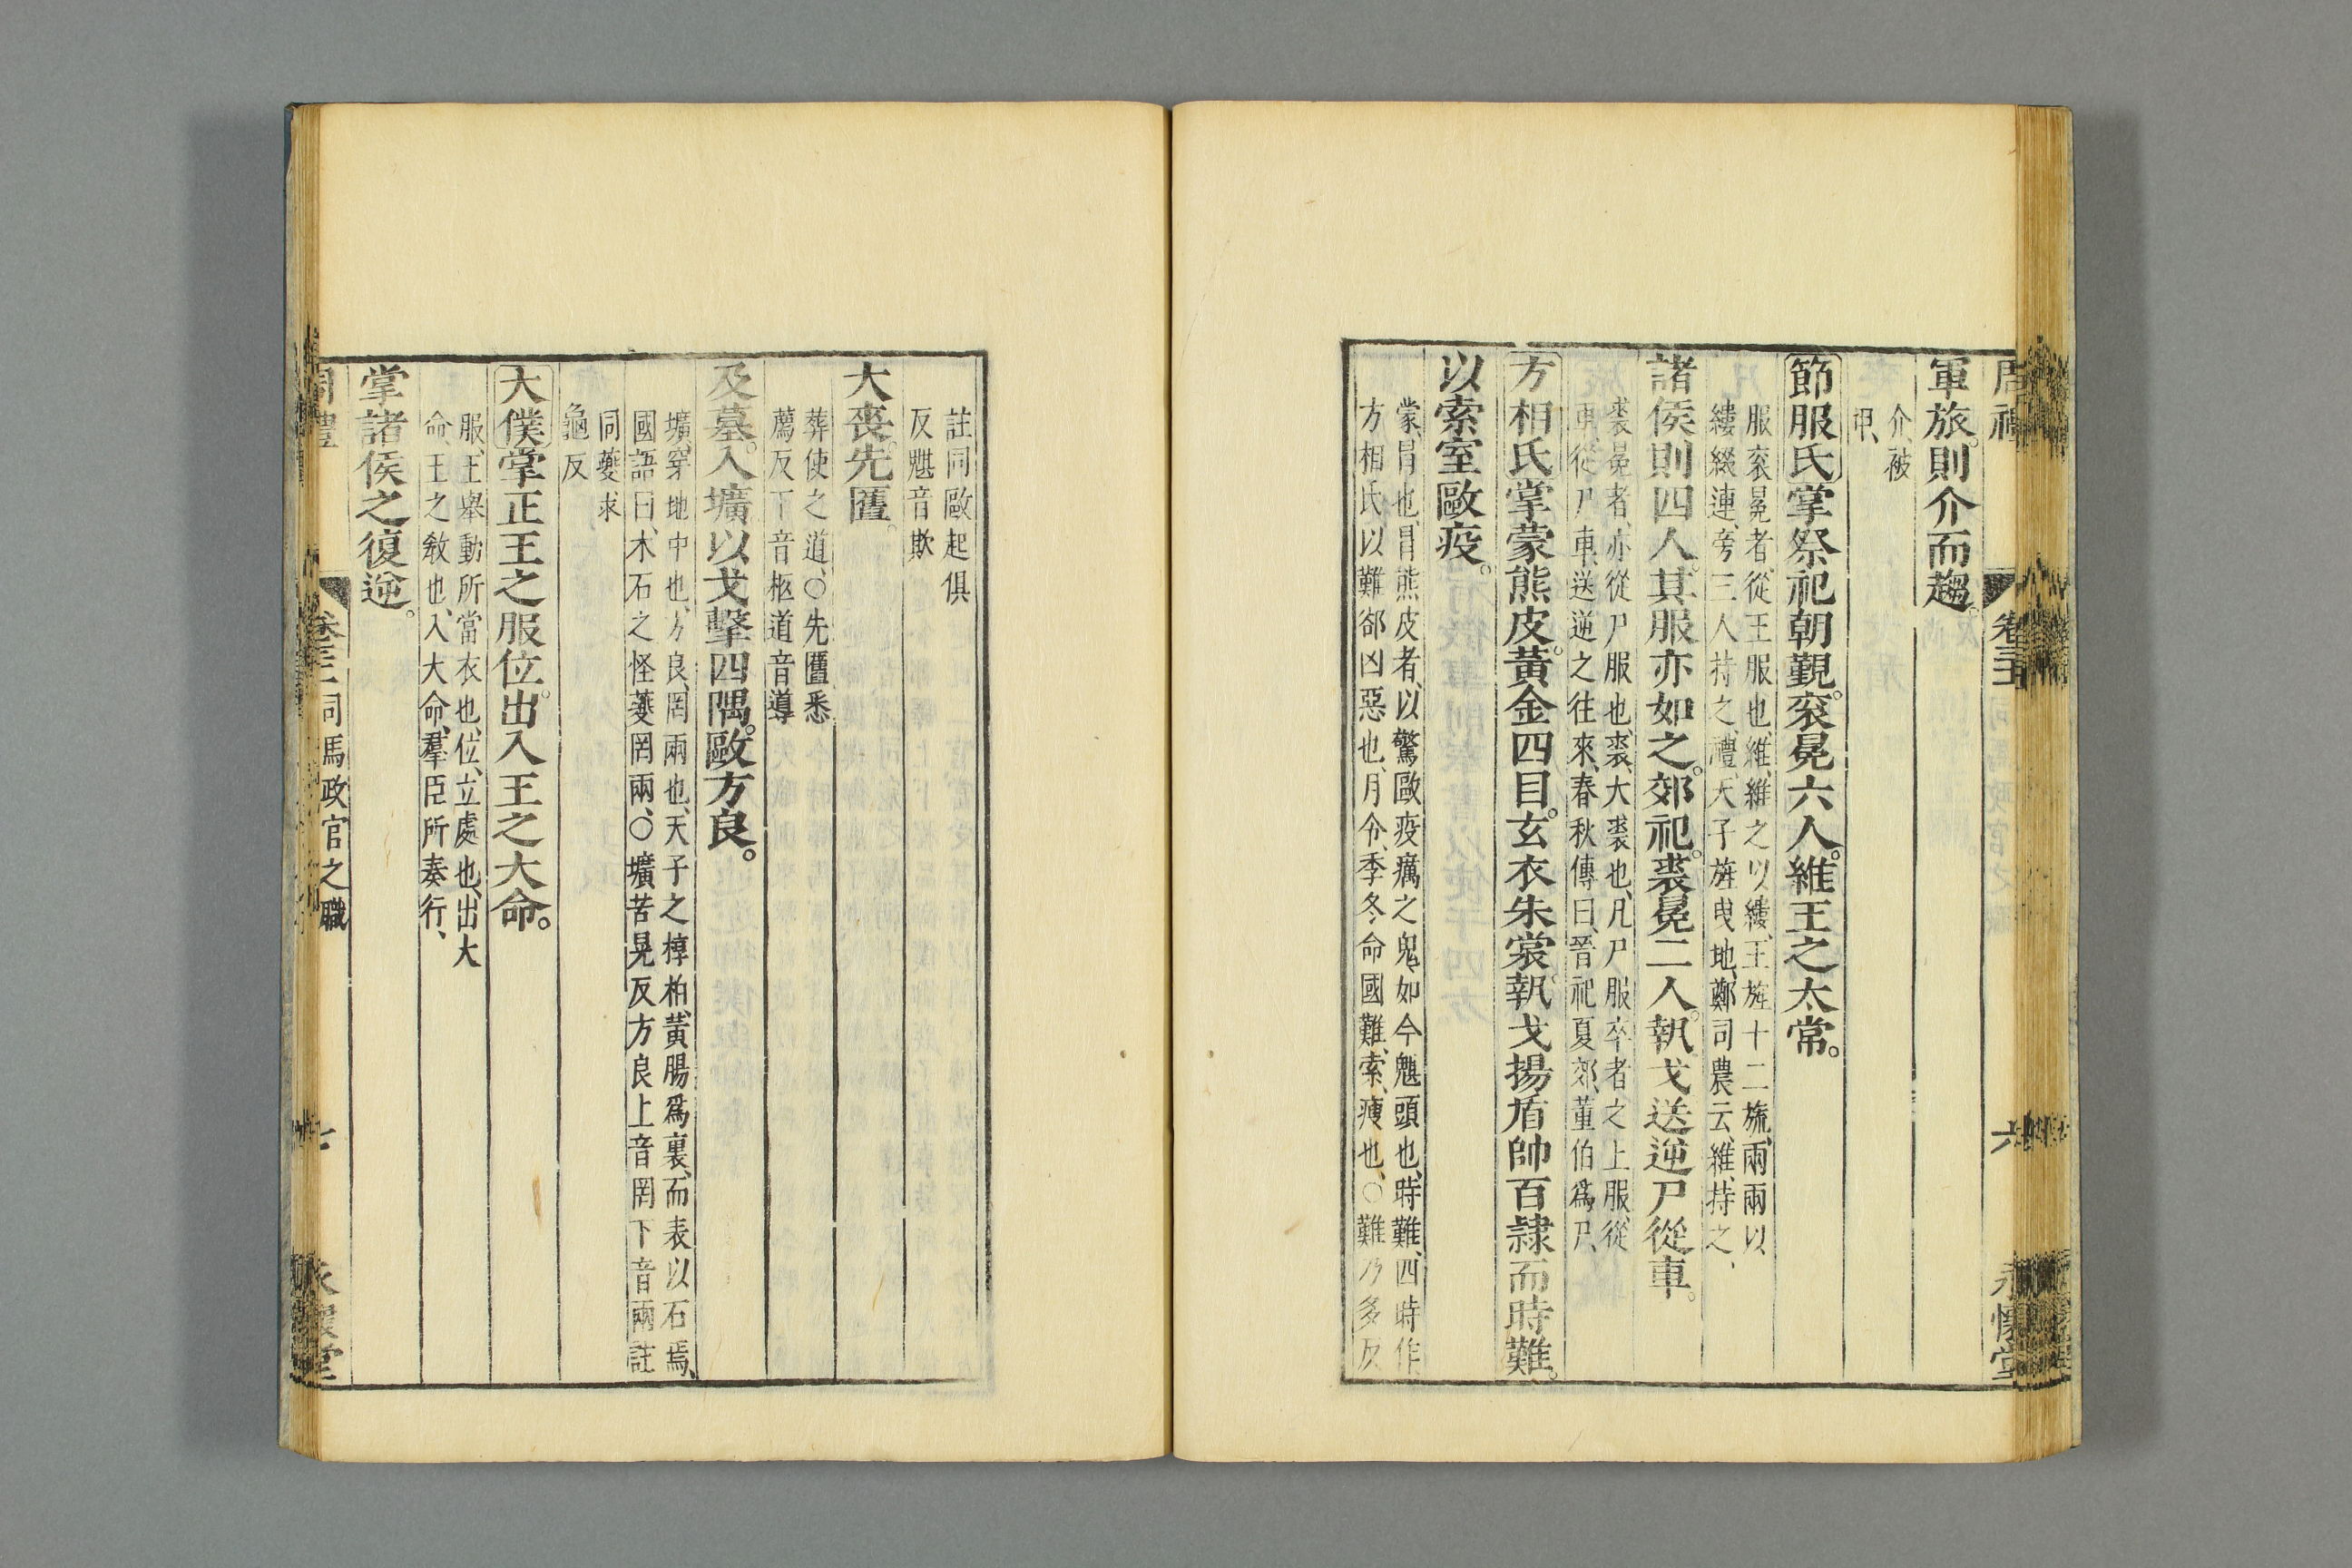 軍旅。則介而趨。
介、被
甲、
節服氏掌祭祀朝覲。袞冕六人。維王之太常。
服袞冕者、從王服也、維、維之以縷、王旌十二旒、兩兩以
縷綴連、旁三人持之、禮、天子旌曳地、鄭司農云、維、持之、
諸侯則四人。其服亦如之。郊祀。裘冕二人。執戈送逆尸從車。
裘冕者、亦從尸服也、裘、大裘也、凡尸服卒者之上服、從
車、從尸車、送逆之往來、春秋傳曰、晉祀夏郊、董伯爲尸、
方相氏掌蒙熊皮。黃金四目。玄衣朱裳。執戈揚盾。帥百隸而時難。
蒙、冒也、冒熊皮者、以驚歐疫癘之鬼、如今魌頭也、時難、四時作
方相氏以難郤凶惡也、月令、季冬、命國難、索、廋也、〇難乃多反
以索室歐疫。
卷三十一
六
永懷堂
註同歐起俱
反魌音欺
大喪。先匶。
葬使之道、〇先匶悉
薦反下音柩道音導
及墓。入壙。以戈擊四隅。歐方良。
壙、穿地中也、方良、罔兩也、天子之椁柏、黃腸爲裏、而表以石焉、
國語曰、木石之怪夔罔兩、〇壙苦晃反方良上音罔下音兩註
同夔求
龜反
大僕掌正王之服位。出入王之大命。
服、王舉動所當衣也、位、立處也、出大
命、王之敎也、入大命、羣臣所奏行、
掌諸侯之復逆。
周禮
卷三十一司馬政官之職
七
永懷堂